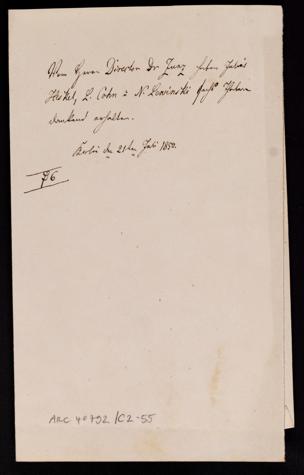 Vom Herrn Director Dr Zunz haben Julius
L. Cohn & N. Lewinski sechs Thaler
dankend erhalten.
Berlin den 21ten Juli 1850.
76
ARC 4°792/C2-55